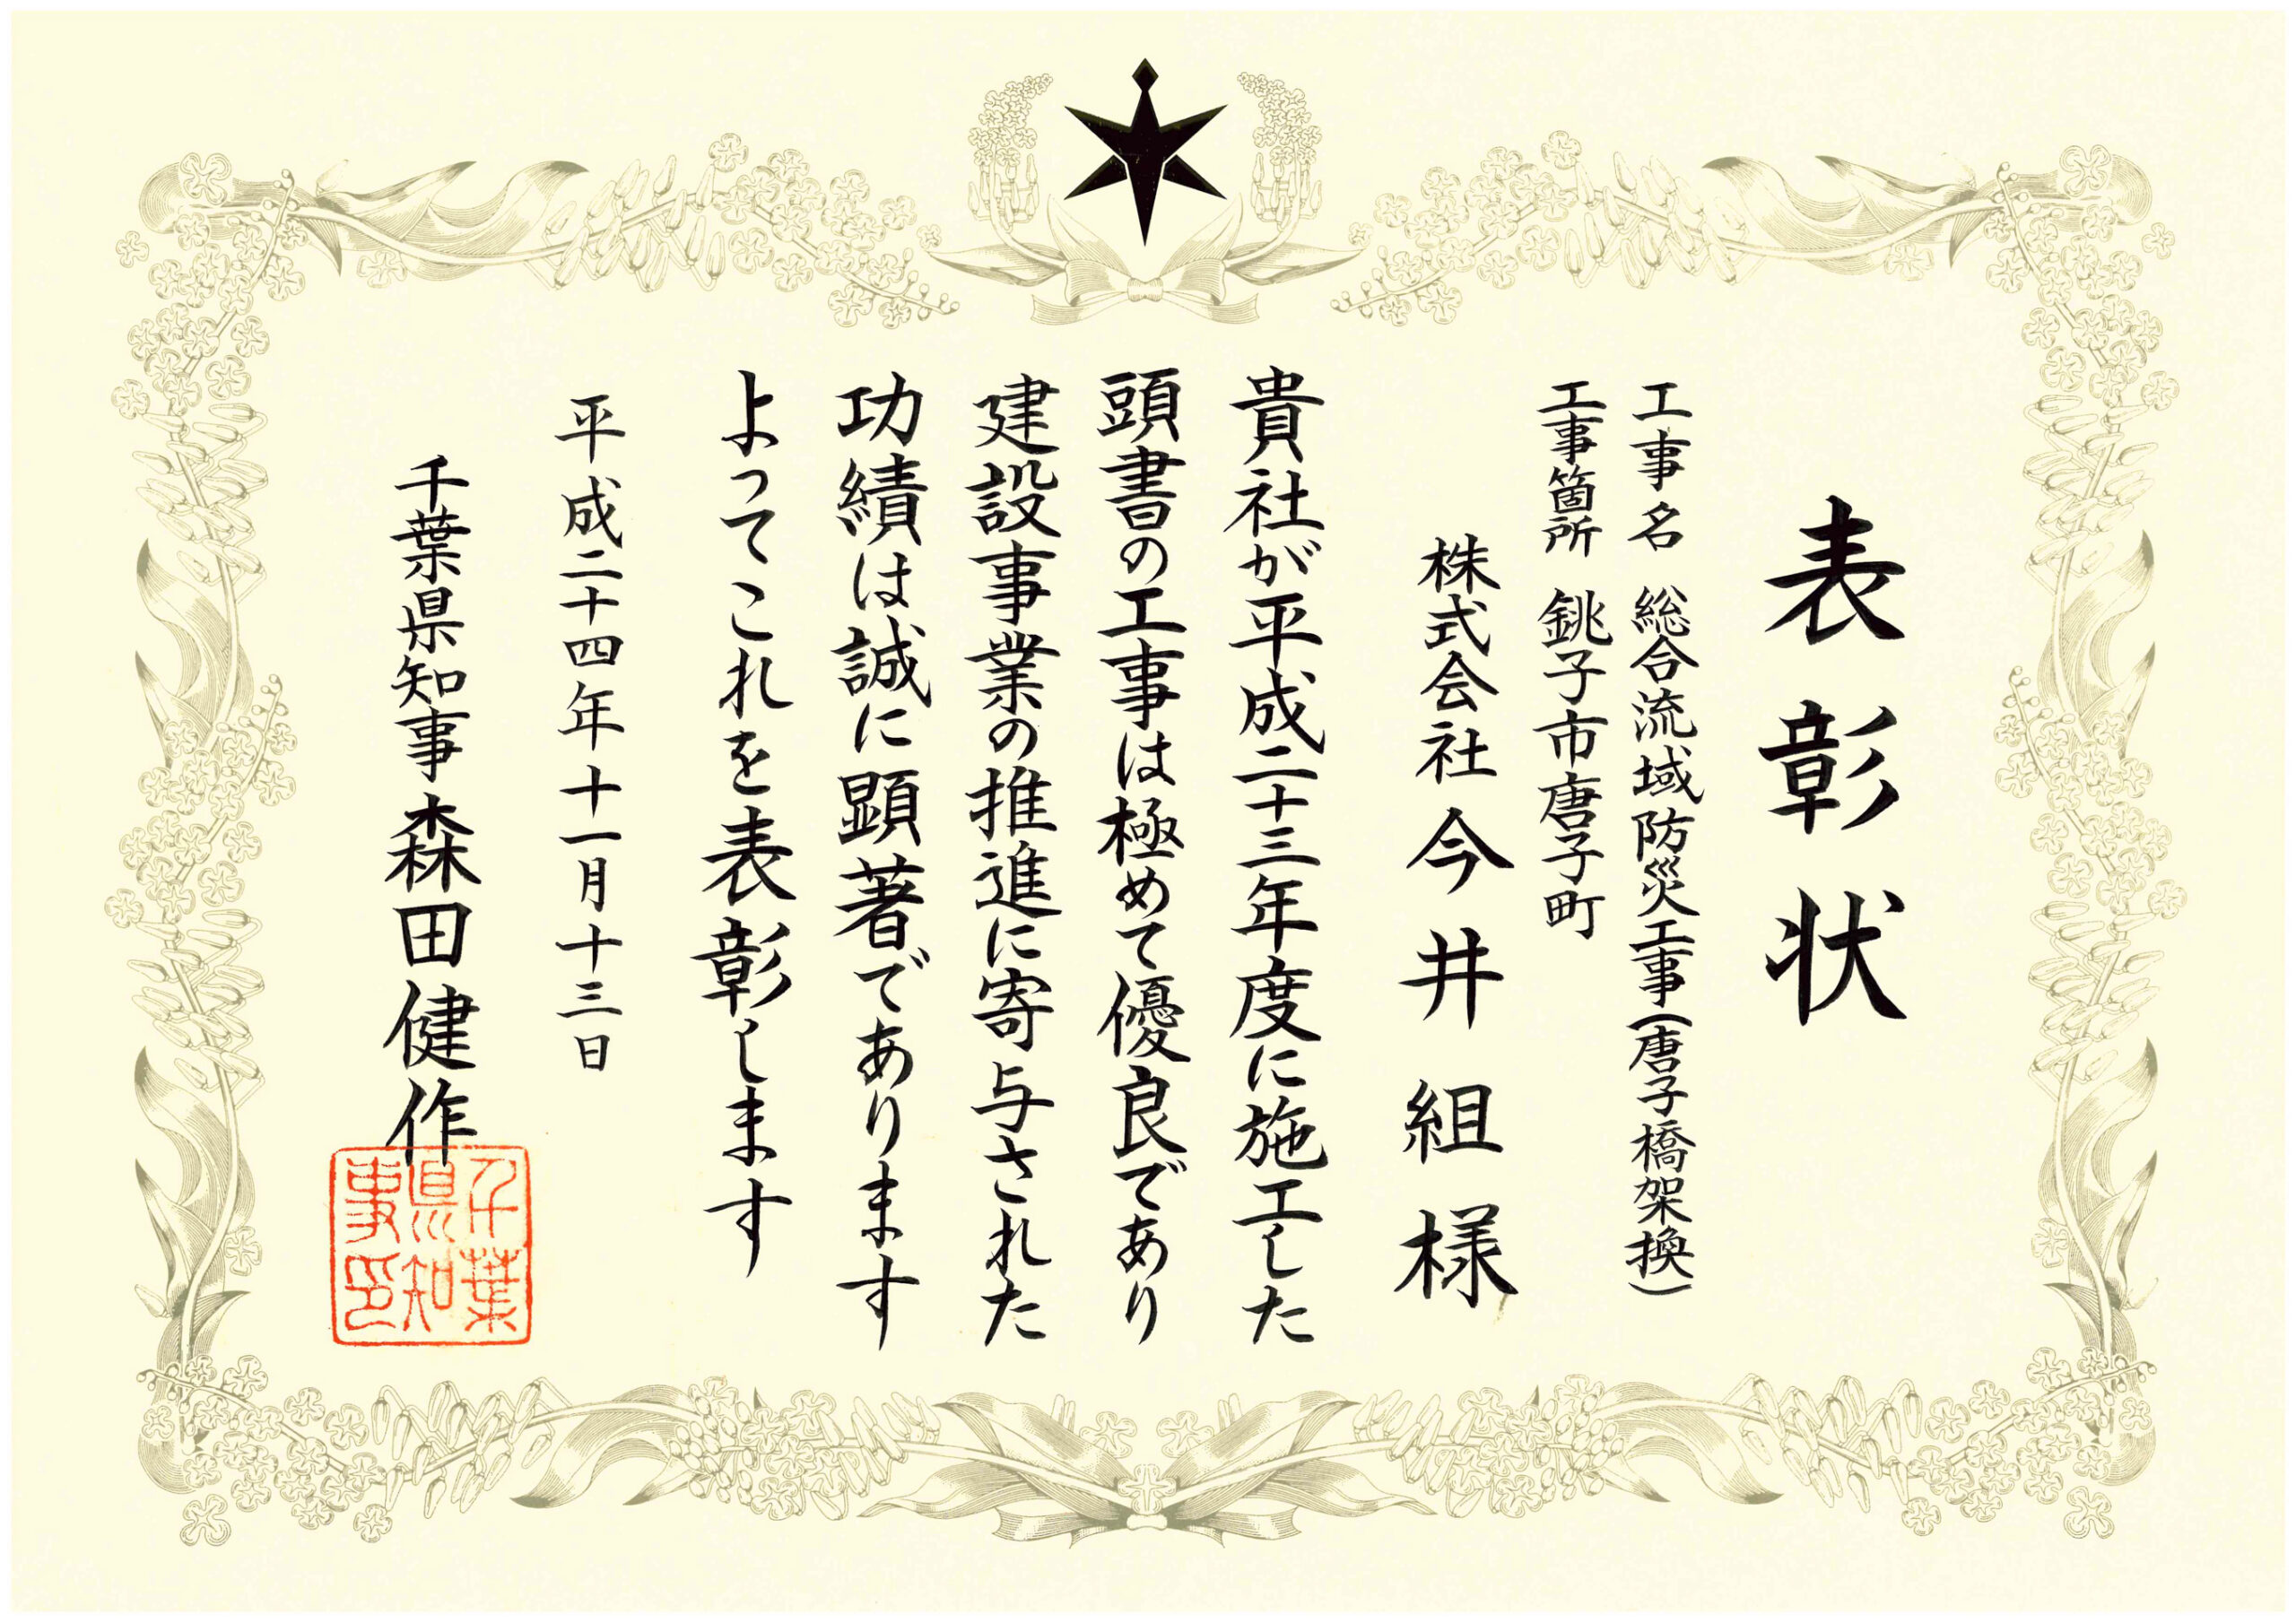 表彰状
工事名 総合流域防災工事(唐子橋架換)
工事箇所 銚子市唐子町
株式会社今井組様
貴社が平成二十三年度に施工した
頭書の工事は極めて優良であり
建設事業の推進に寄与された
功績は誠に顕著であります
よってこれを表彰します
平成二十四年十一月十三日
千葉県知事森田健作
千葉
県知
事印